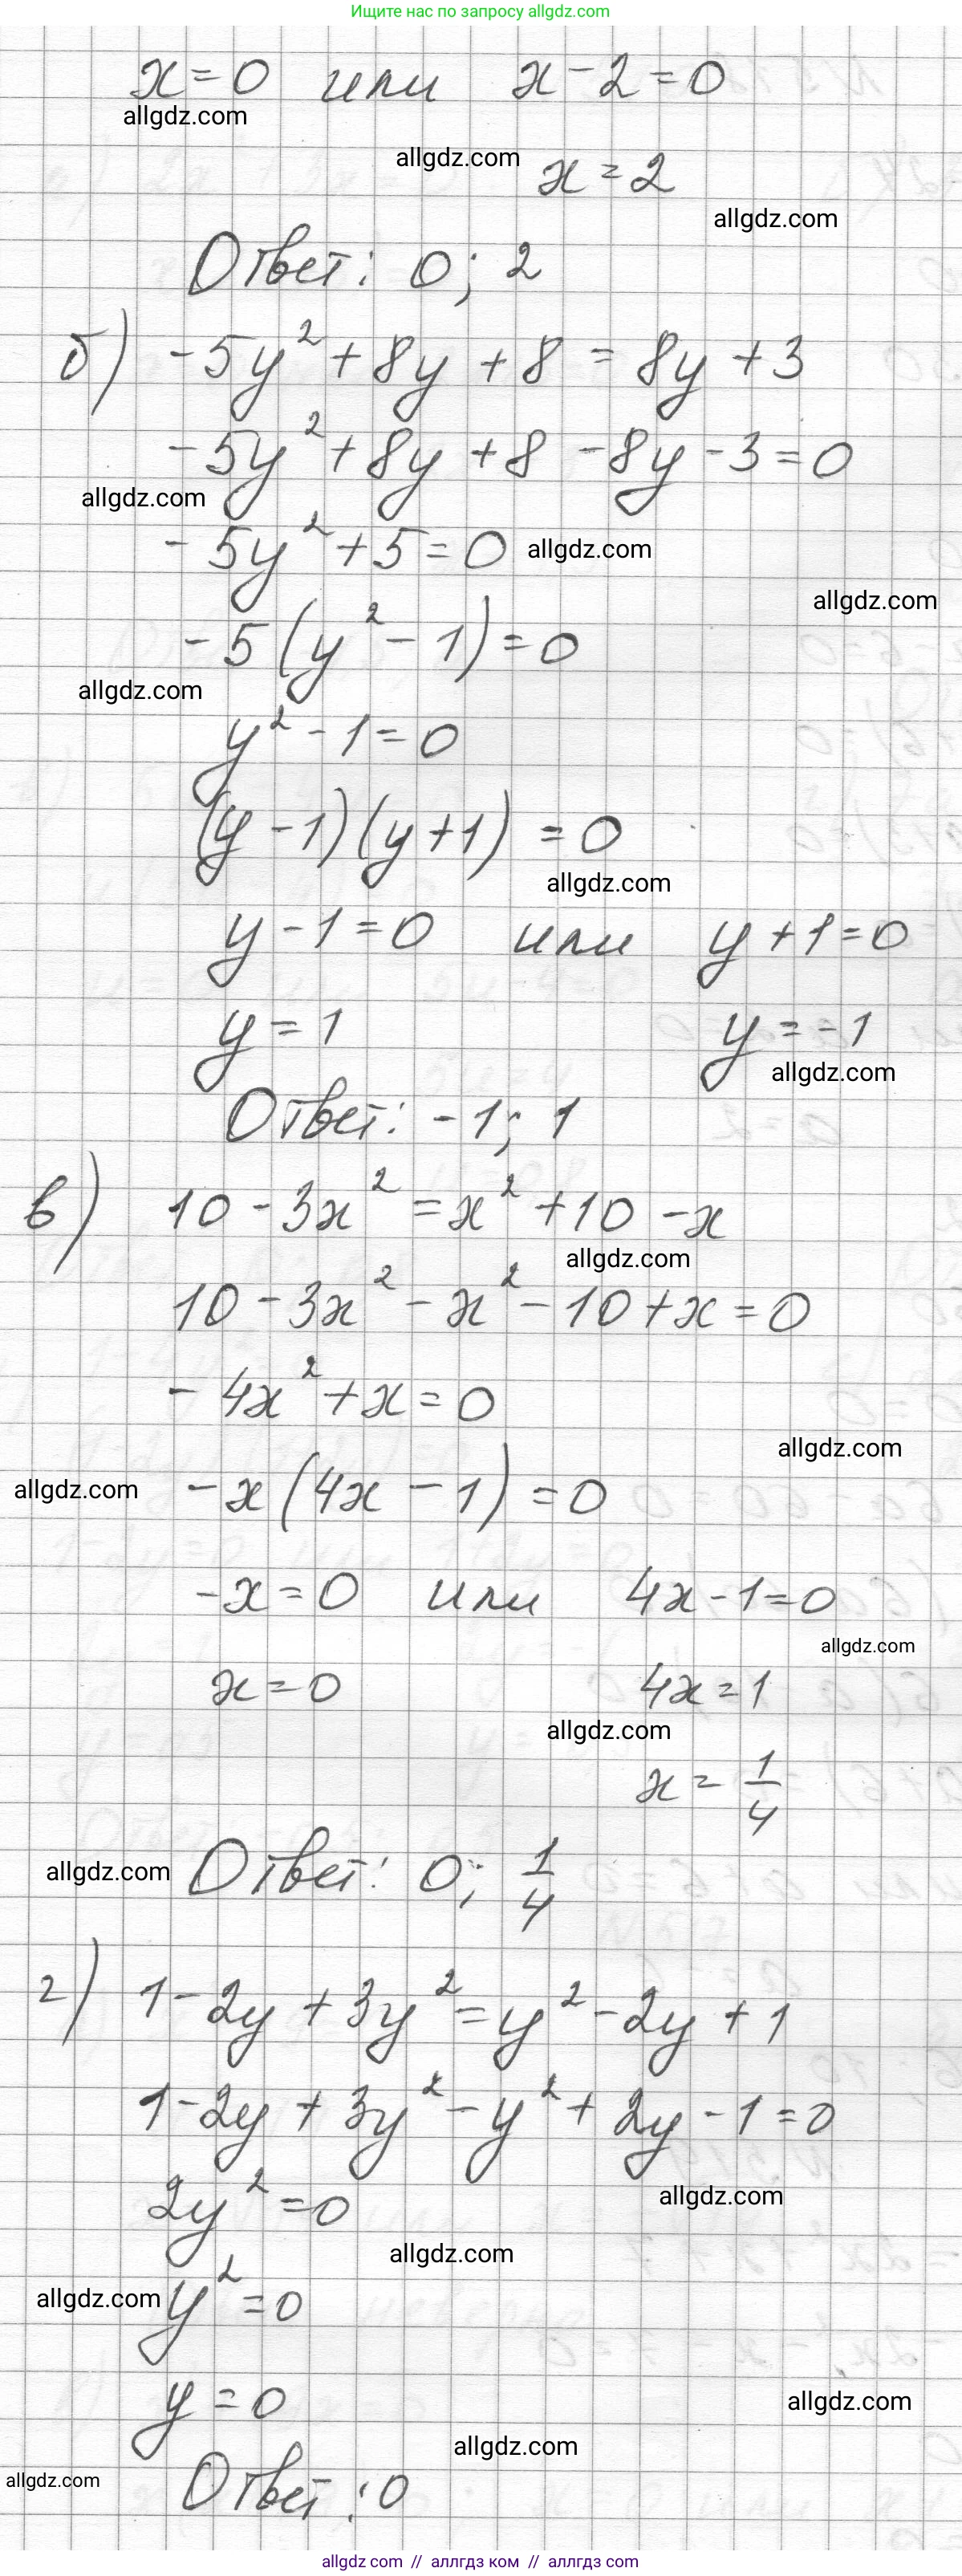 Ищите нас по запросу allgdz.com
x = 0 или x - 2 = 0
allgdz.com
allgdz.com
x = 2
allgdz.com
Ответ: 0; 2
б) -5y² + 8y + 8 = 8y + 3
-5y² + 8y + 8 - 8y - 3 = 0
allgdz.com
-5y² + 5 = 0
allgdz.com
allgdz.com
-5(y² - 1) = 0
allgdz.com
y² - 1 = 0
(y - 1)(y + 1) = 0
allgdz.com
y - 1 = 0 или y + 1 = 0
y = 1 y = -1
allgdz.com
Ответ: -1; 1
в) 10 - 3x² = x² + 10 - x
allgdz.com
10 - 3x² - x² - 10 + x = 0
-4x² + x = 0
allgdz.com
allgdz.com
-x(4x - 1) = 0
-x = 0 или 4x - 1 = 0
allgdz.com
x = 0 4x = 1
allgdz.com
x = 1/4
allgdz.com
Ответ: 0; 1/4
г) 1 - 2y + 3y² = y² - 2y + 1
1 - 2y + 3y² - y² + 2y - 1 = 0
allgdz.com
2y² = 0
allgdz.com
allgdz.com
y² = 0
y = 0
allgdz.com
allgdz.com
allgdz.com
Ответ: 0
allgdz.com // аллгдз ком // аллгдз.com